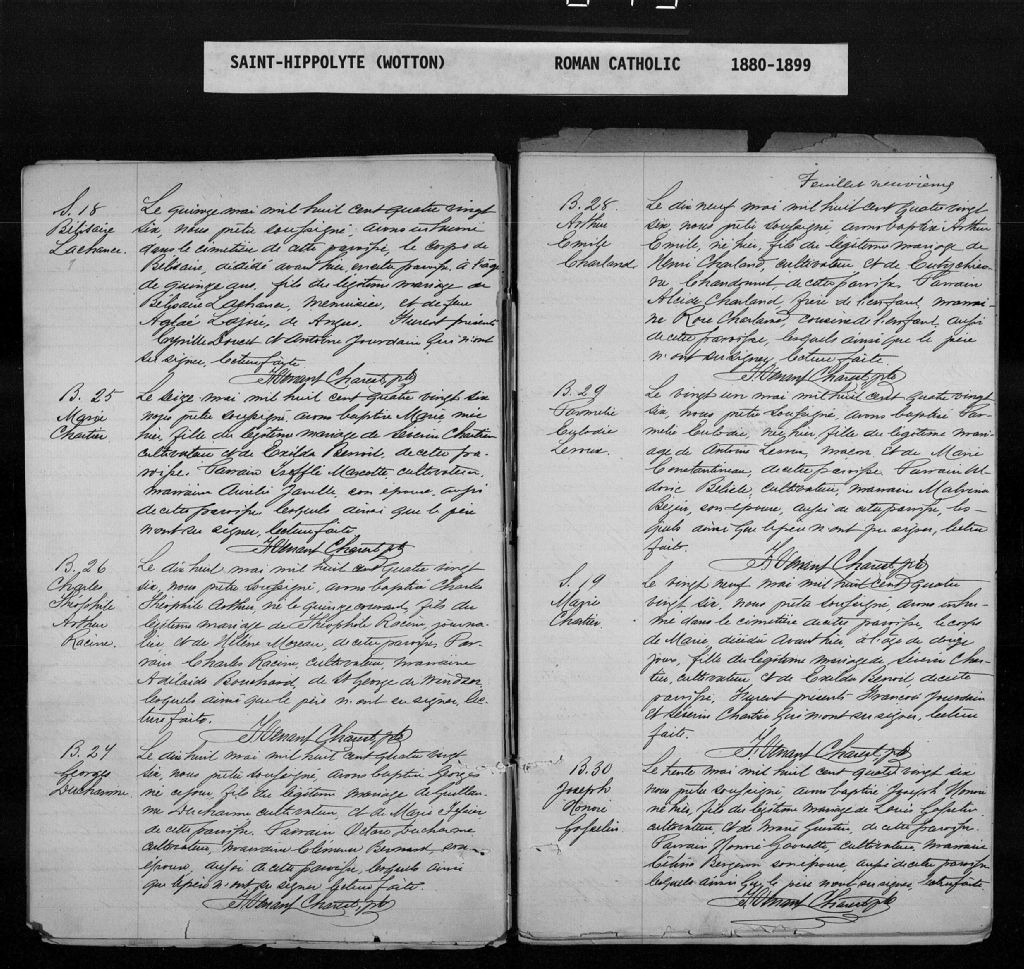 SAINT-HIPPOLYTE (WOTTON) ROMAN CATHOLIC 1880-1899
S. 18
Bélisaire
Lachance.
Le quinze mai mil huit cent quatre vingt
six, nous prêtre soussigné, avons inhumé
dans le cimetière de cette paroisse, le corps de
Bélisaire, décédé avant hier, en cette paroisse, à l'âge
de quinze ans, fils du légitime mariage de
Bélisaire Lachance, menuisier, et de feue
Aglaé de Furent présents
Cyrille Doucet et Antoine Jourdain qui n'ont
su signer, lecture faite
F. Venant Charest ptre
B. 25
Marie
Chartier
Le seize mai mil huit cent quatre vingt six
nous prêtre soussigné, avons baptisé Marie, née
hier, fille du légitime mariage de Séverin Chartier
cultivateur et de Exilda Benoit, de cette pa-
roisse. Parrain Marcotte cultivateur,
marraine Aurélie son épouse, aussi
de cette paroisse lesquels ainsi que le père
n'ont su signer, lecture faite
F. Venant Charest ptr
B. 26
Charles
Théophile
Arthur
Racine.
Le dix huit mai mil huit cent quatre vingt
six, nous prêtre soussigné, avons baptisé Charles
Théophile Arthur, né le quinze courant, fils du
légitime mariage de Théophile Racine, journa-
lier, et de Hélène Moreau, de cette paroisse, Par-
rain Charles Racine, cultivateur, marraine
Adelaide Bouchard, de St George de Windsor
lesquels ainsi que le père n'ont su signer, lec-
ture faite.
F. Venant Charest ptr
B. 27
Georges
Ducharme.
Le dix huit mai mil huit cent quatre vingt
six, nous prêtre soussigné, avons baptisé Georges
né ce jour, fils du légitime mariage de Guillau-
me Ducharme cultivateur, et de Marie
de cette paroisse. Parrain Ducharme
cultivateur, marraine Clémence Bernard, son
épouse, aussi de cette paroisse, lesquels ainsi
que le père n'ont su signer lecture faite
F. Venant Charest ptr
Feuillet neuvième
B. 28
Arthur
Emile
Charland
Le dix neuf mai mil huit cent quatre vingt
six, nous prêtre soussigné, avons baptisé Arthur
Emile, né hier, fils du légitime mariage de
Henri Charland, cultivateur et de
de cette paroisse. Parrain
Alcide Charland, frère de l'enfant, marrai-
ne Rose Charland, cousine de l'enfant, aussi
de cette paroisse, lesquels ainsi que le père
n'ont su signer, lecture faite
F. Venant Charest ptr
B. 29
Parmelie
Eulodie
Leroux.
Le vingt un mai mil huit cent quatre vingt
six, nous prêtre soussigné, avons baptisé Par-
melie Eulodie, née hier, fille du légitime mari-
age de Antoine Leroux, maçon et de Marie
Constantineau, de cette paroisse. Parrain Lu-
doric Belisle, cultivateur, marraine Malvina
son épouse, aussi de cette paroisse, les-
quels ainsi que le père n'ont pu signer, lecture
faite.
F. Venant Charest ptr
S. 19
Marie
Chartier
Le vingt neuf mai mil huit cent quatre
vingt six, nous prêtre soussigné, avons inhu-
mé dans le cimetière de cette paroisse, le corps
de Marie, décédée avant hier, à l'âge de douze
jours, fille du légitime mariage de Séverin Char-
tier, cultivateur et de Exilda Benoit, de cette
paroisse, Furent présents François Jourdain
et Séverin Chartier qui n'ont su signer, lecture
faite.
F. Venant Charest ptr
B. 30
Joseph
Honoré
Gosselin
Le trente mai mil huit cent quatre vingt six
nous prêtre soussigné avons baptisé Joseph Honoré
né hier, fils du légitime mariage de Louis Gosselin
cultivateur et de Marie de cette paroisse.
Parrain Honoré cultivateur, marraine
Bergeron son épouse, aussi de cette paroisse
lesquels ainsi que le père n'ont su signer lecture faite
F. Venant Charest ptr